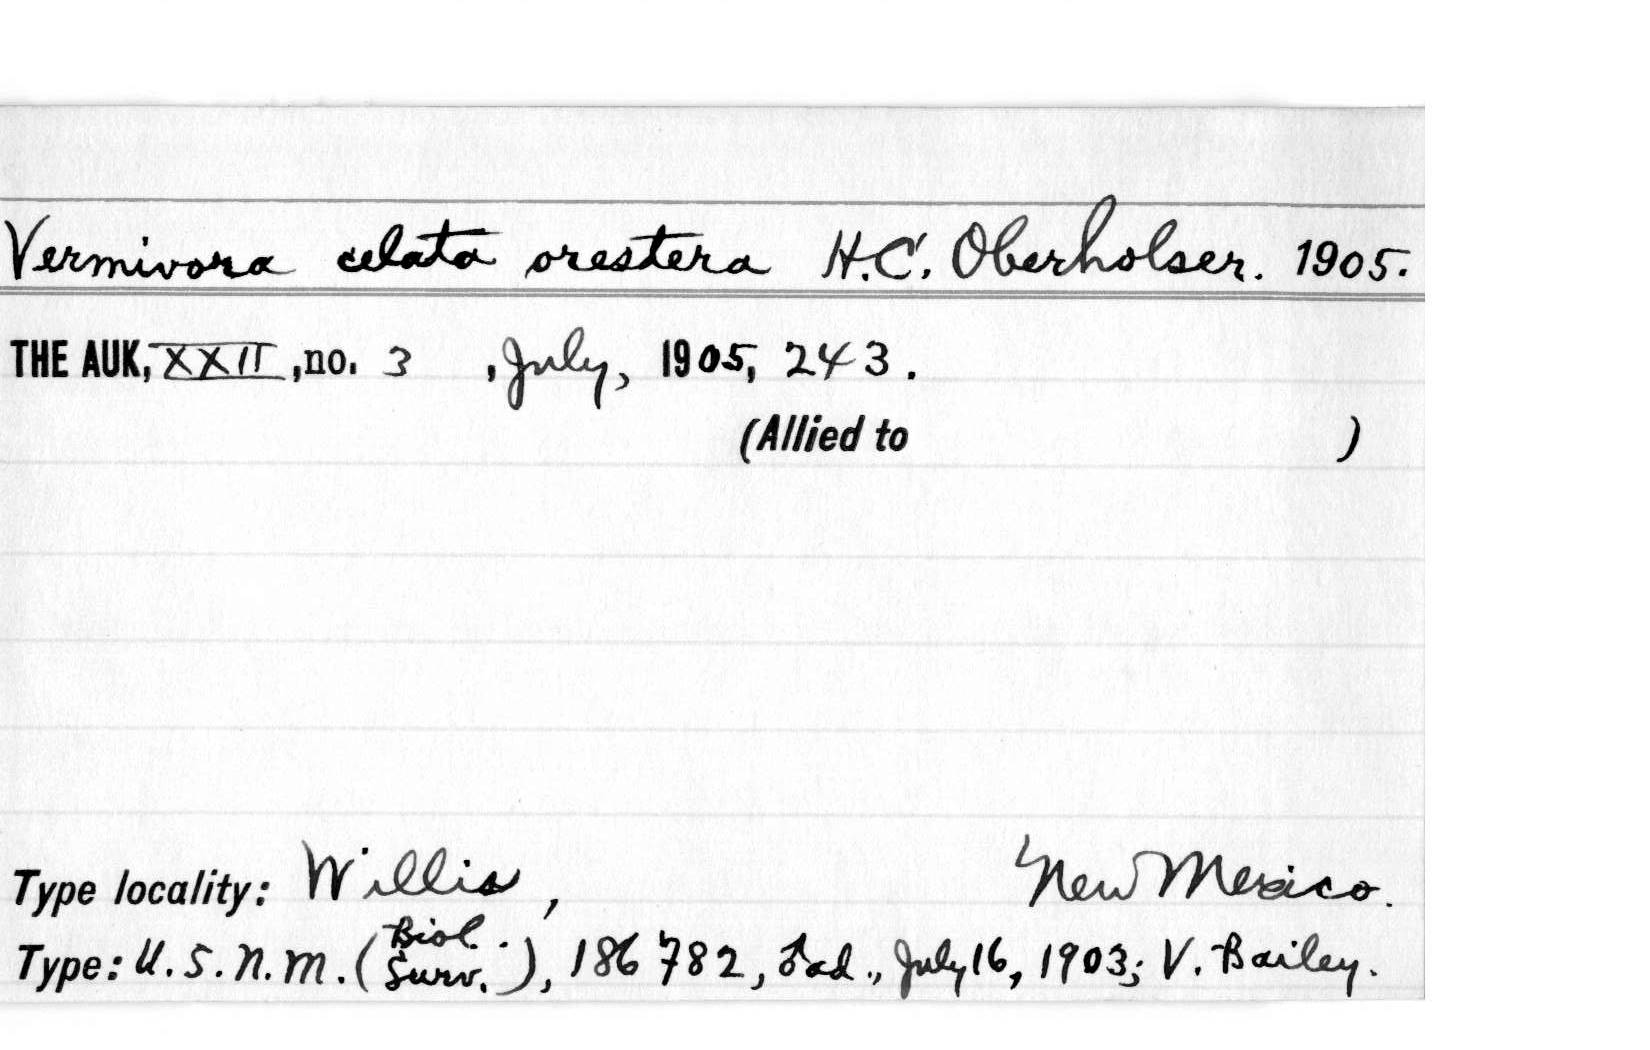 Vermivora celata orestera H.C. Oberholser. 1905.
THE AUK, XXII, no. 3, July, 1905, 243.
(Allied to )
Type locality: Willis, New Mexico.
Type: U.S.N.M. (Biol. Surv.), 186782, ♂ ad., July 16, 1903; V. Bailey.